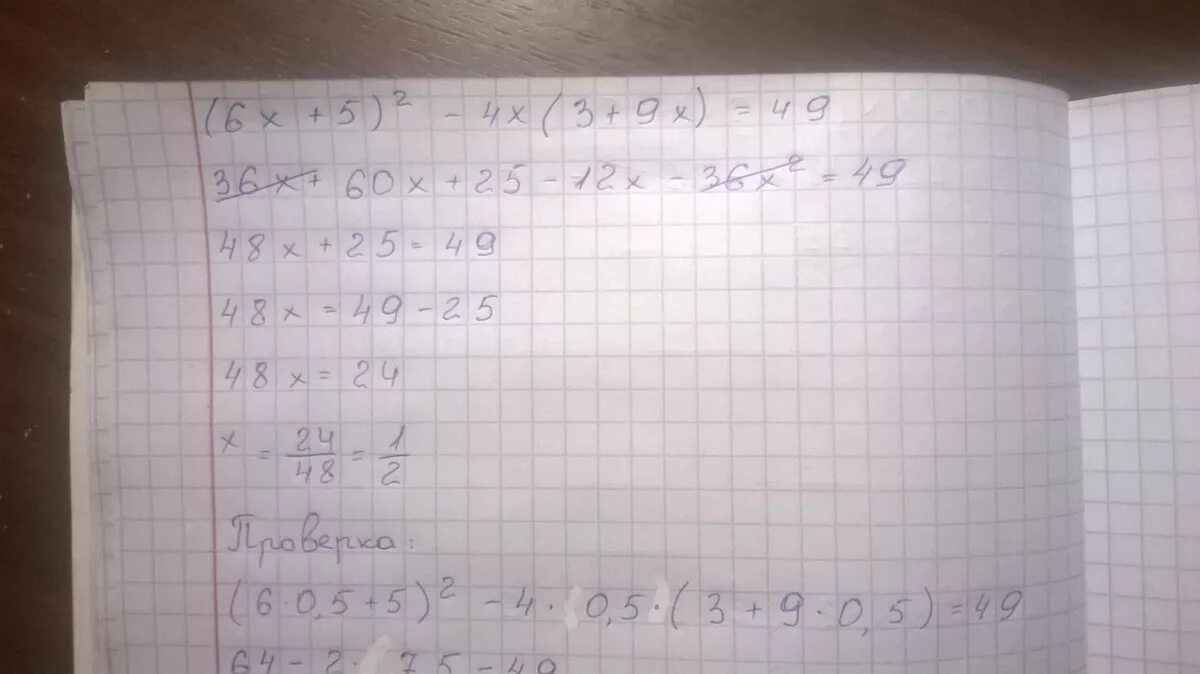 (6x + 5)² - 4x(3 + 9x) = 49
36x + 60x + 25 - 12x - 36x² = 49
48x + 25 = 49
48x = 49 - 25
48x = 24
x = 24/48 = 1/2
Проверка:
(6·0,5+5)² - 4· 0,5·(3 + 9·0,5) = 49
64 - 2· 7,5 = 49